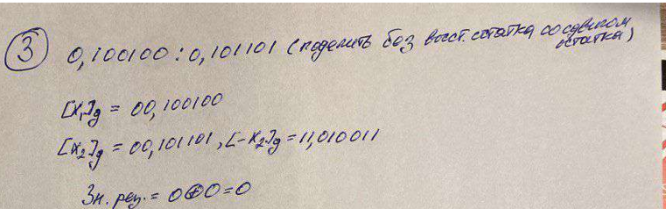 3 0,100100 : 0,101101 (поделить без восст. остатка со сдвигом
остатка)
[x₁]g = 00,100100
[x₂]g = 00,101101, [-x₂]g = 11,010011
Зн. рез. = 0⊕0=0